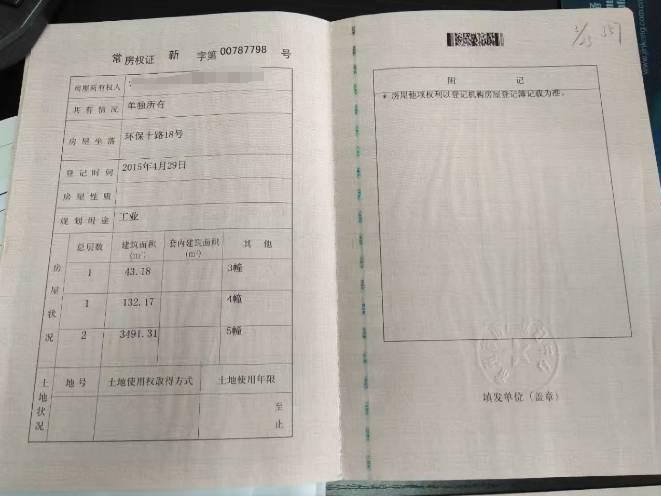 常 房权证 新 字第 00787798 号
房屋所有权人
共有情况 单独所在
房屋坐落 环保十路18号
登记时间 2015年4月29日
房屋性质
规划用途 工业
房屋状况
总层数 建筑面积(㎡) 套内建筑面积(㎡) 其他
1 43.18 3幢
1 132.17 4幢
2 3491.31 5幢
土地状况
地号 土地使用权取得方式 土地使用年限
至
止
附 记
* 房屋他项权利以登记机构房屋登记簿记载为准。
填发单位（盖章）